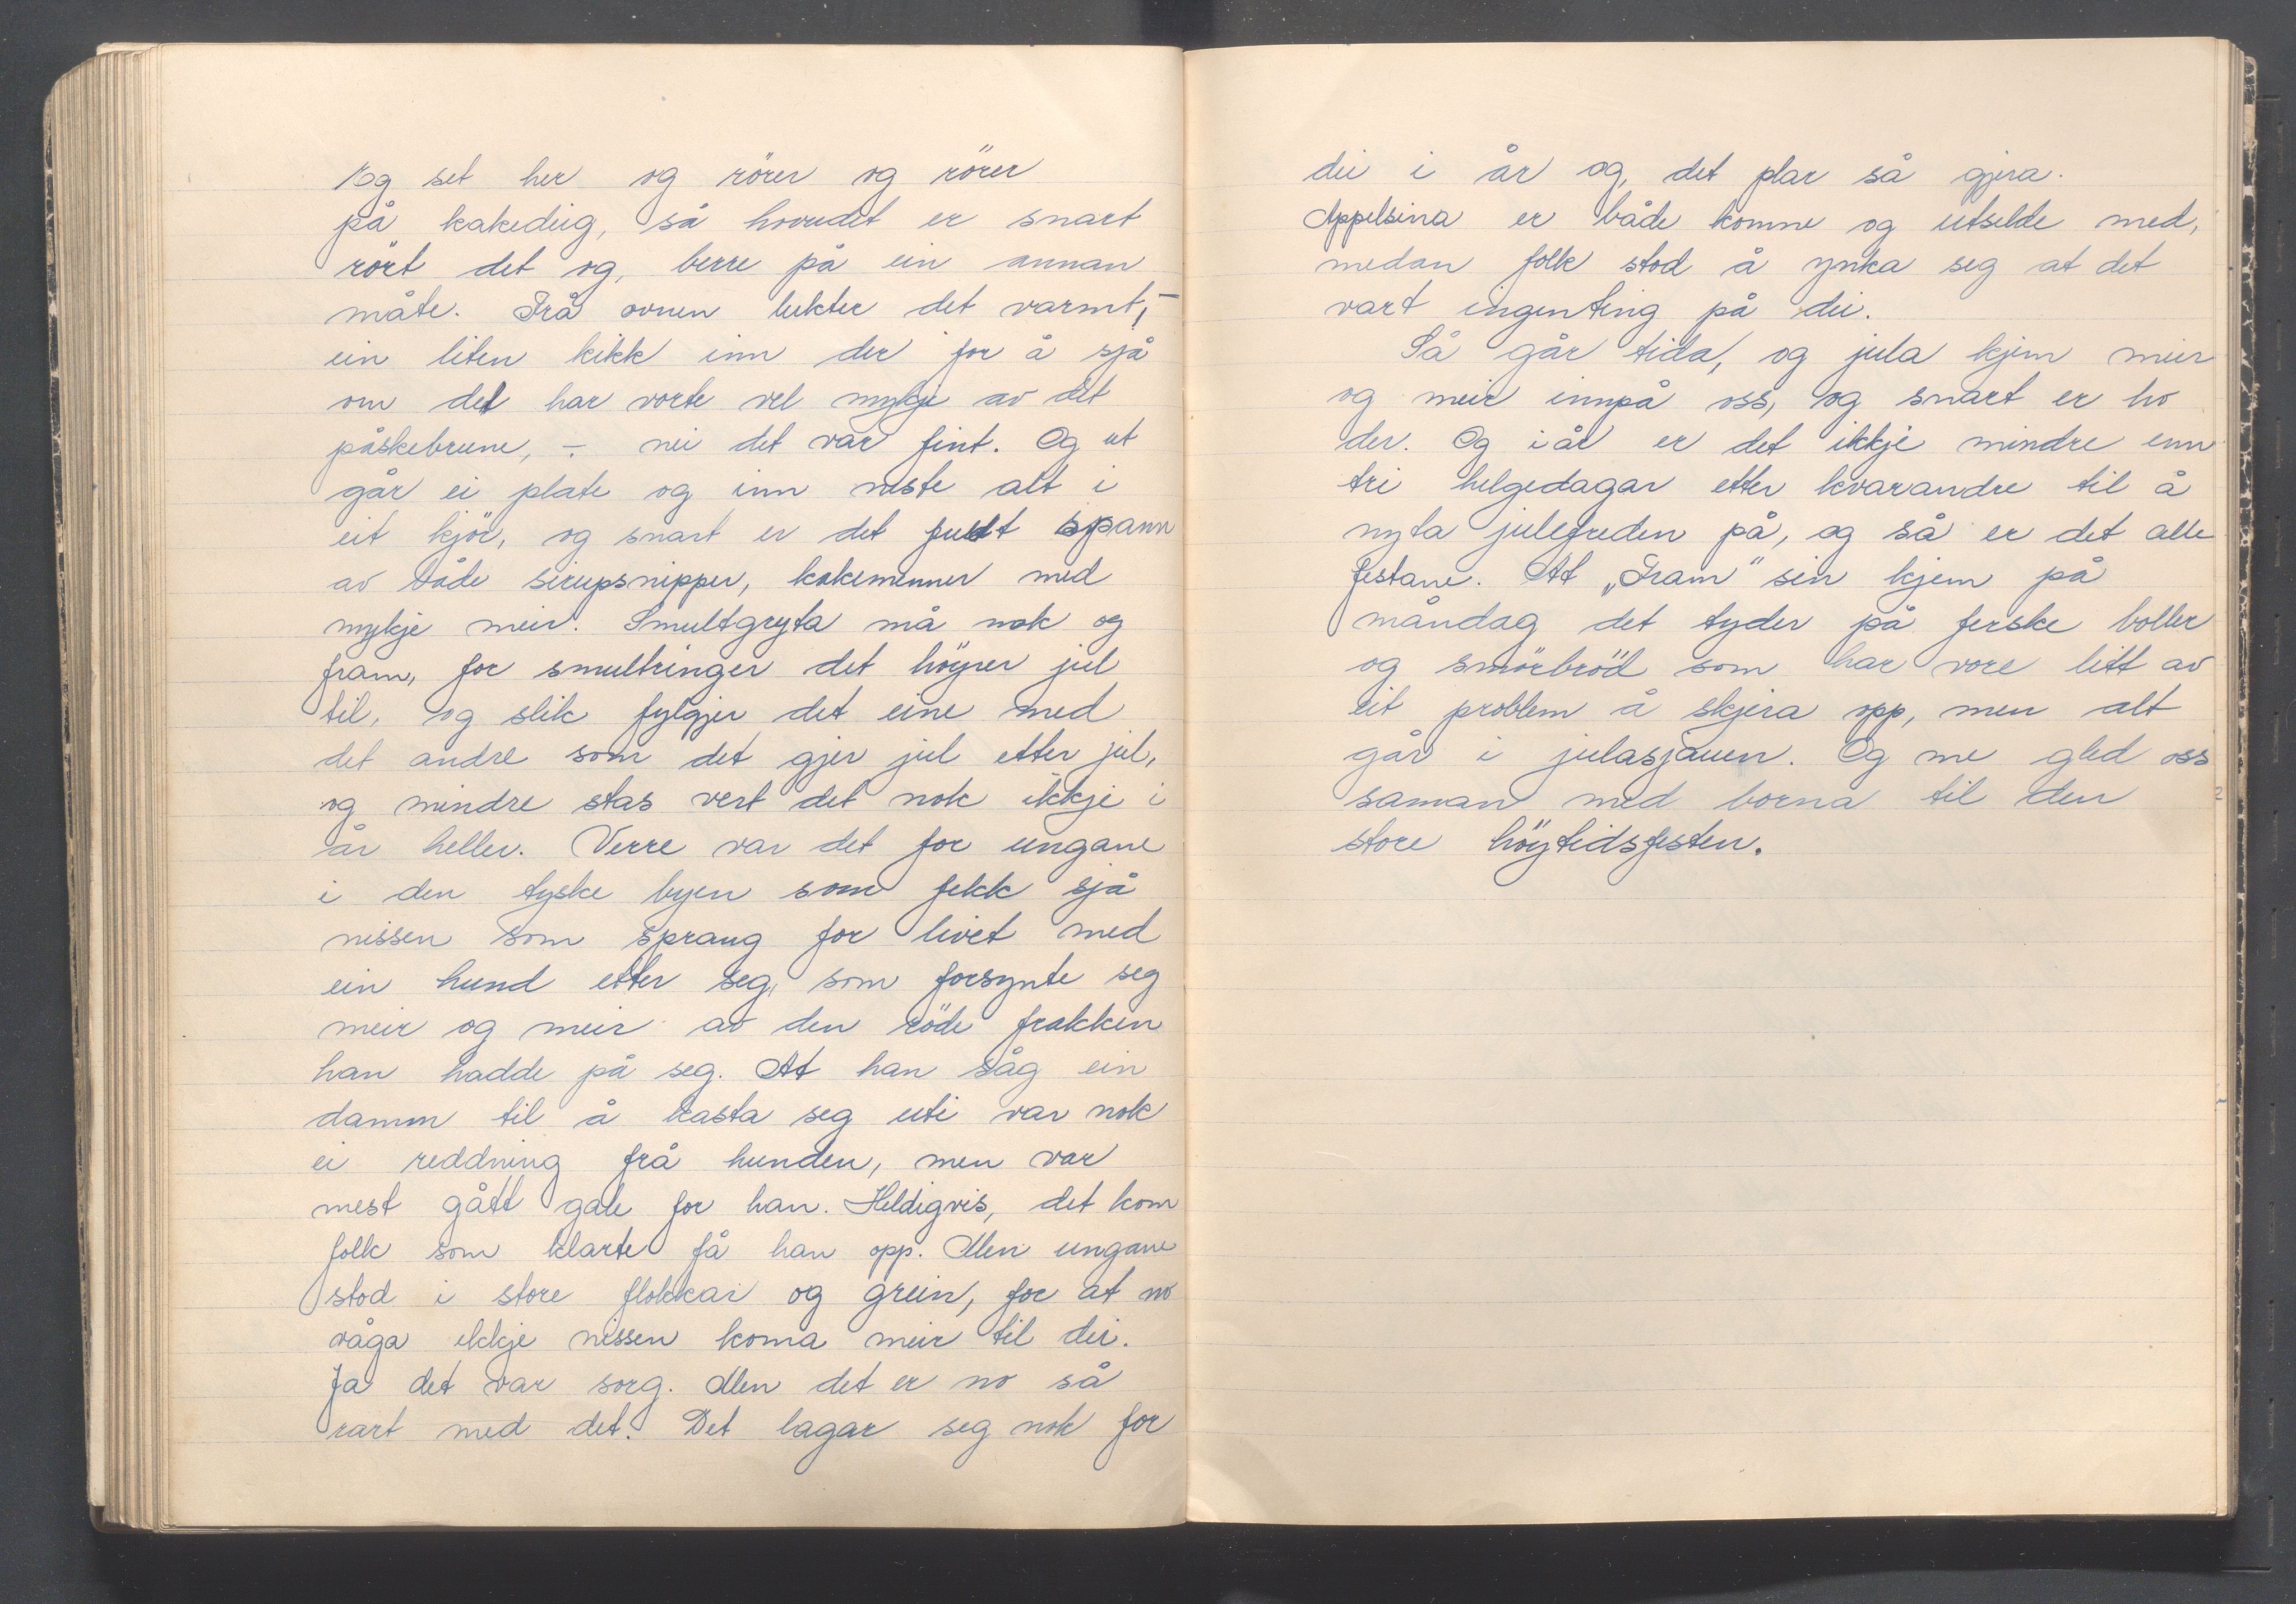 Eg set her og rörer og rörer
på kakedeig, så hovudet er snart
rört det og, berre på ein annan
måte. Frå ovnen lukter det varmt, –
ein liten kikk inn der for å sjå
om det har vorte vel mykje av det
påskebrune, – nei det var fint. Og ut
går ei plate og inn neste alt i
eit kjör, og snart er det fullt spann
av både sirupsnipper, kakemenner med
mykje meir. Smultgryta må nok og
fram, for smultringer det höyrer jul
til, og slik fylgjer det eine med
det andre som det gjer jul etter jul,
og mindre stas vert det nok ikkje i
år heller. Verre var det for ungane
i den tyske byen som fekk sjå
nissen som sprang for livet med
ein hund etter seg, som forsynte seg
meir og meir av den röde frakken
han hadde på seg. At han såg ein
damm til å kasta seg uti var nok
ei reddning frå hunden, men var
mest gått gale for han. Heldigvis, det kom
folk som klarte få han opp. Men ungane
stod i store flokkar og grein, for at no
våga ikkje nissen koma meir til dei.
Ja det var sorg. Men det er no så
rart med det. Det lagar seg nok for
dei i år og, det plar så gjera.
Appelsina er både komne og utselde med,
medan folk stod å ynka seg at det
vart ingenting på dei.
Så går tida, og jula kjem meir
og meir innpå oss, og snart er ho
der. Og i år er det ikkje mindre enn
tri helgedagar etter kvarandre til å
nyta julefreden på, og så er det alle
festane. At „Fram" sin kjem på
måndag det tyder på ferske boller
og smörbröd som har vore litt av
eit problem å skjera opp, men alt
går i julasjauen. Og me gled oss
saman med borna til den
store höytidsfesten.